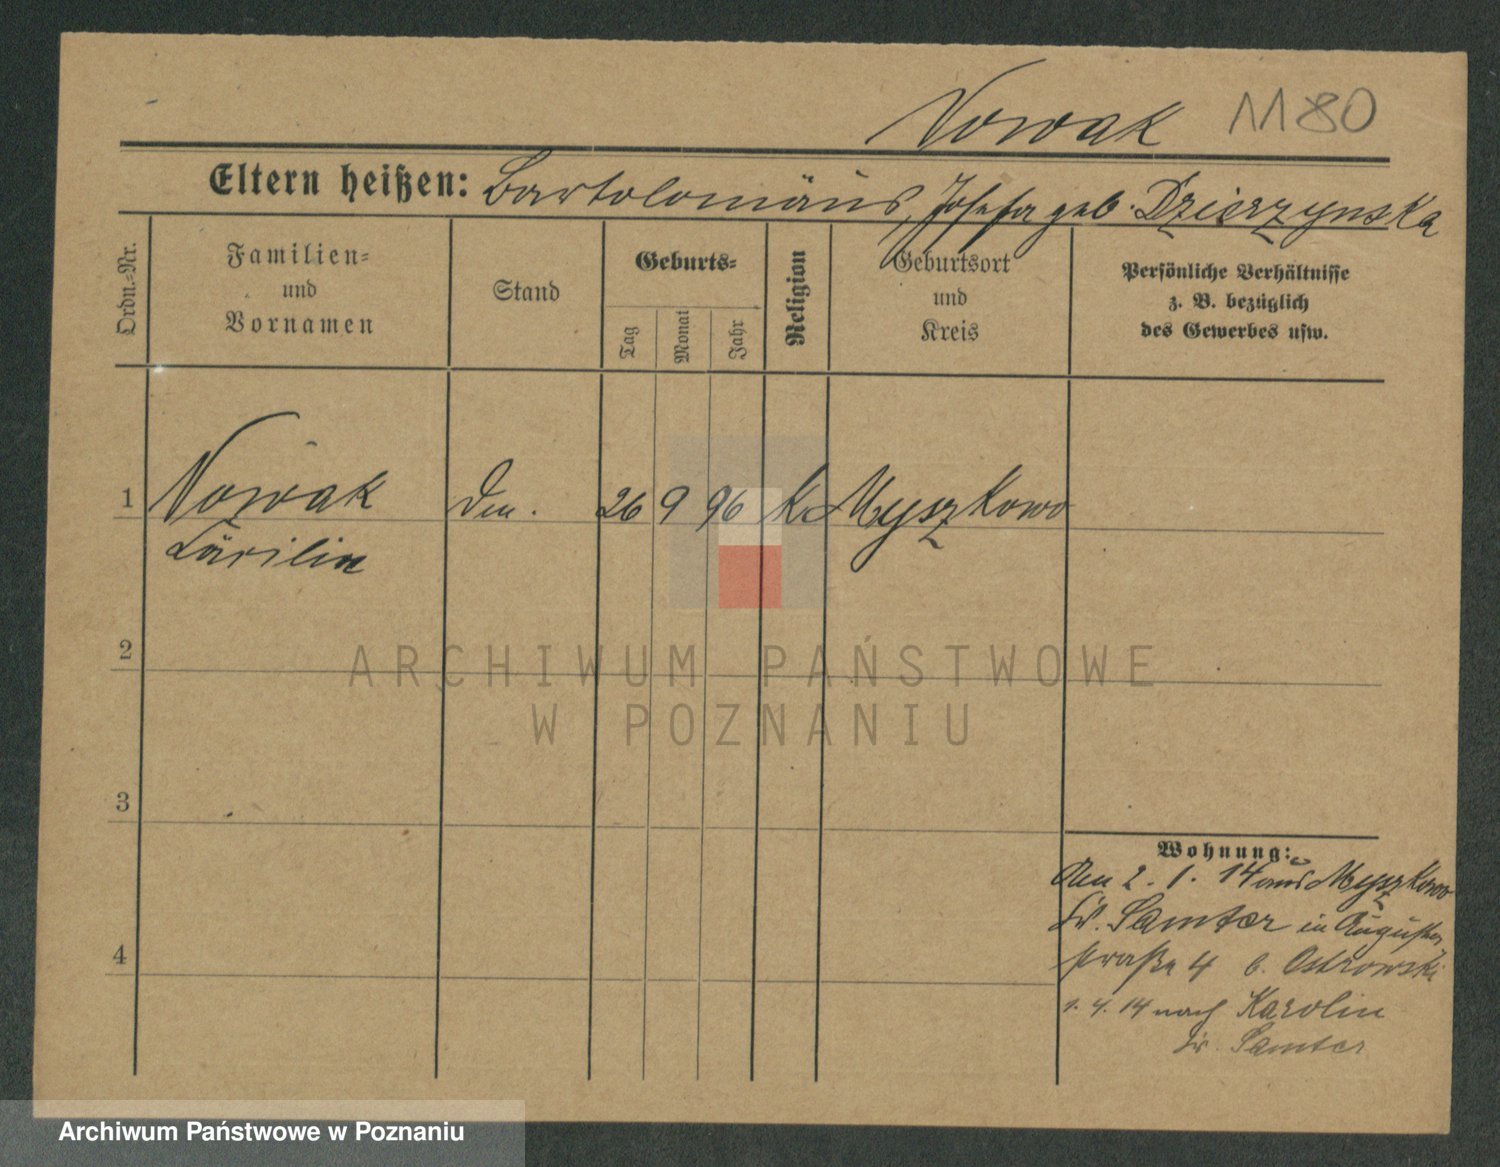 Nowak 1180
Eltern heißen: Bartolomäus, Josefa geb. Dzierzynska
Ordn.-Nr.
Familien-
und
Vornamen
Stand
Geburts-
Tag
Monat
Jahr
Religion
Geburtsort
und
Kreis
Persönliche Verhältnisse
z. B. bezüglich
des Gewerbes usw.
1 Nowak 26 9 96 K Myszkowo
2
3
4
Wohnung:
Den 2. 1. 14 aus Myszkowo
Kr. Samter in Augusta-
straße 4 b. Ostrowski
1. 4. 14 nach Karolin
Kr. Samter
ARCHIWUM PAŃSTWOWE
W POZNANIU
Archiwum Państwowe w Poznaniu